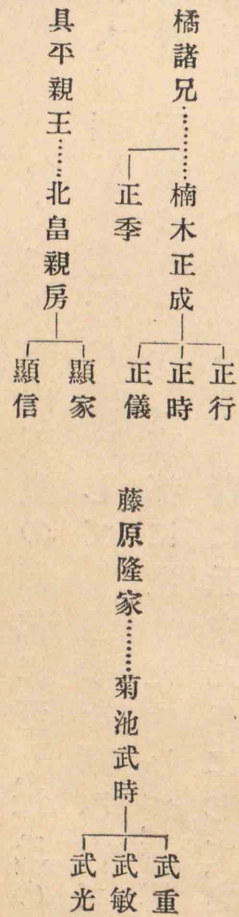 橘諸兄…………楠木正成
正季
正行
正時
正儀
具平親王……北畠親房
顯家
顯信
藤原隆家…………菊池武時
武重
武敏
武光